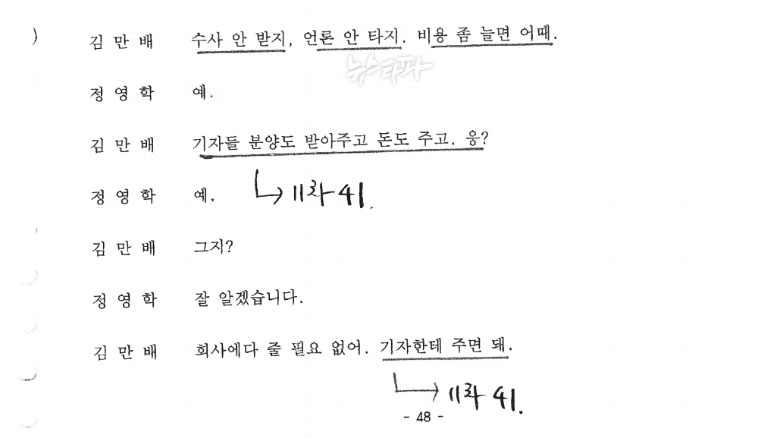 )
김 만 배 수사 안 받지, 언론 안 타지. 비용 좀 늘면 어때.
뉴스타파
정 영 학 예.
김 만 배 기자들 분양도 받아주고 돈도 주고. 응?
정 영 학 예.
김 만 배 그지?
정 영 학 잘 알겠습니다.
김 만 배 회사에다 줄 필요 없어. 기자한테 주면 돼.
- 48 -